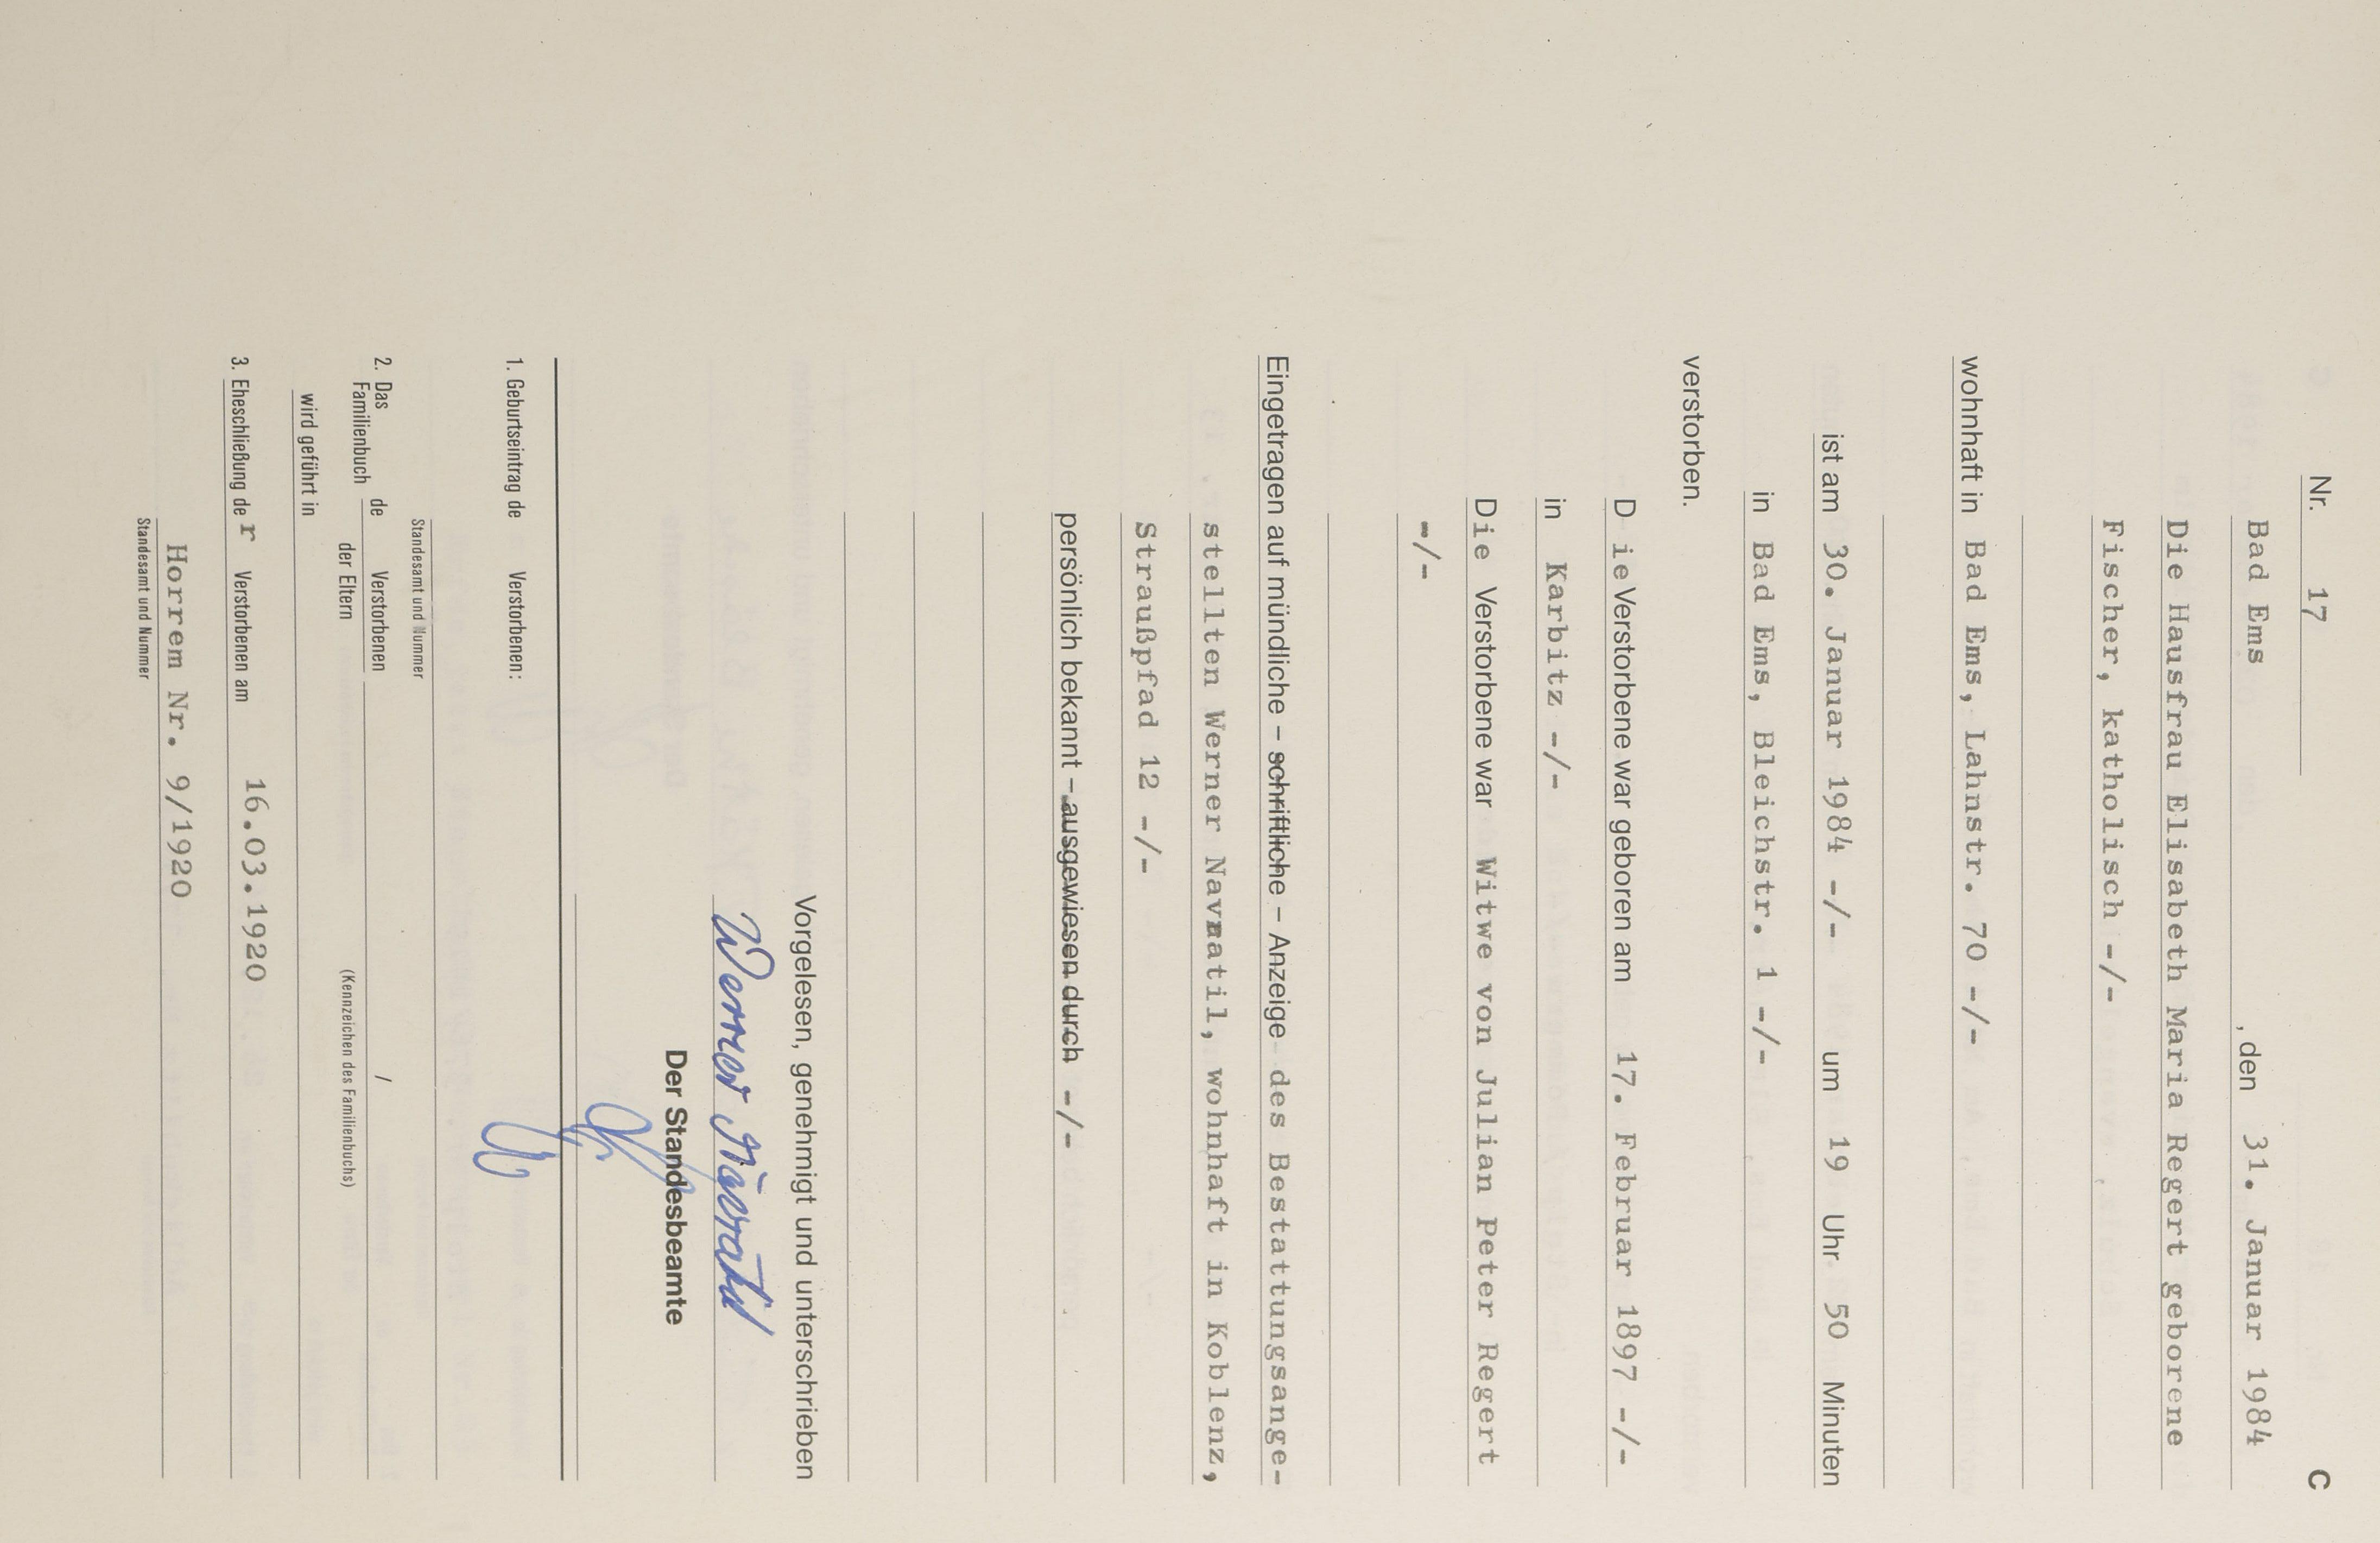 Nr. 17 C
Bad Ems , den 31. Januar 1984
Die Hausfrau Elisabeth Maria Regert geborene
Fischer, katholisch -/-
wohnhaft in Bad Ems, Lahnstr. 70 -/-
ist am 30. Januar 1984 -/- um 19 Uhr 50 Minuten
in Bad Ems, Bleichstr. 1 -/-
verstorben.
Die Verstorbene war geboren am 17. Februar 1897 -/-
in Karbitz -/-
Die Verstorbene war Witwe von Julian Peter Regert
-/-
Eingetragen auf mündliche – schriftliche – Anzeige des Bestattungsange-
stellten Werner Navratil, wohnhaft in Koblenz,
Straußpfad 12 -/-
persönlich bekannt – ausgewiesen durch -/-
Vorgelesen, genehmigt und unterschrieben
Werner Navratil
Der Standesbeamte
1. Geburtseintrag de Verstorbenen:
Standesamt und Nummer
2. Das Familienbuch de Verstorbenen /
der Eltern (Kennzeichen des Familienbuchs)
wird geführt in
3. Eheschließung der Verstorbenen am 16.03.1920
Horrem Nr. 9/1920
Standesamt und Nummer